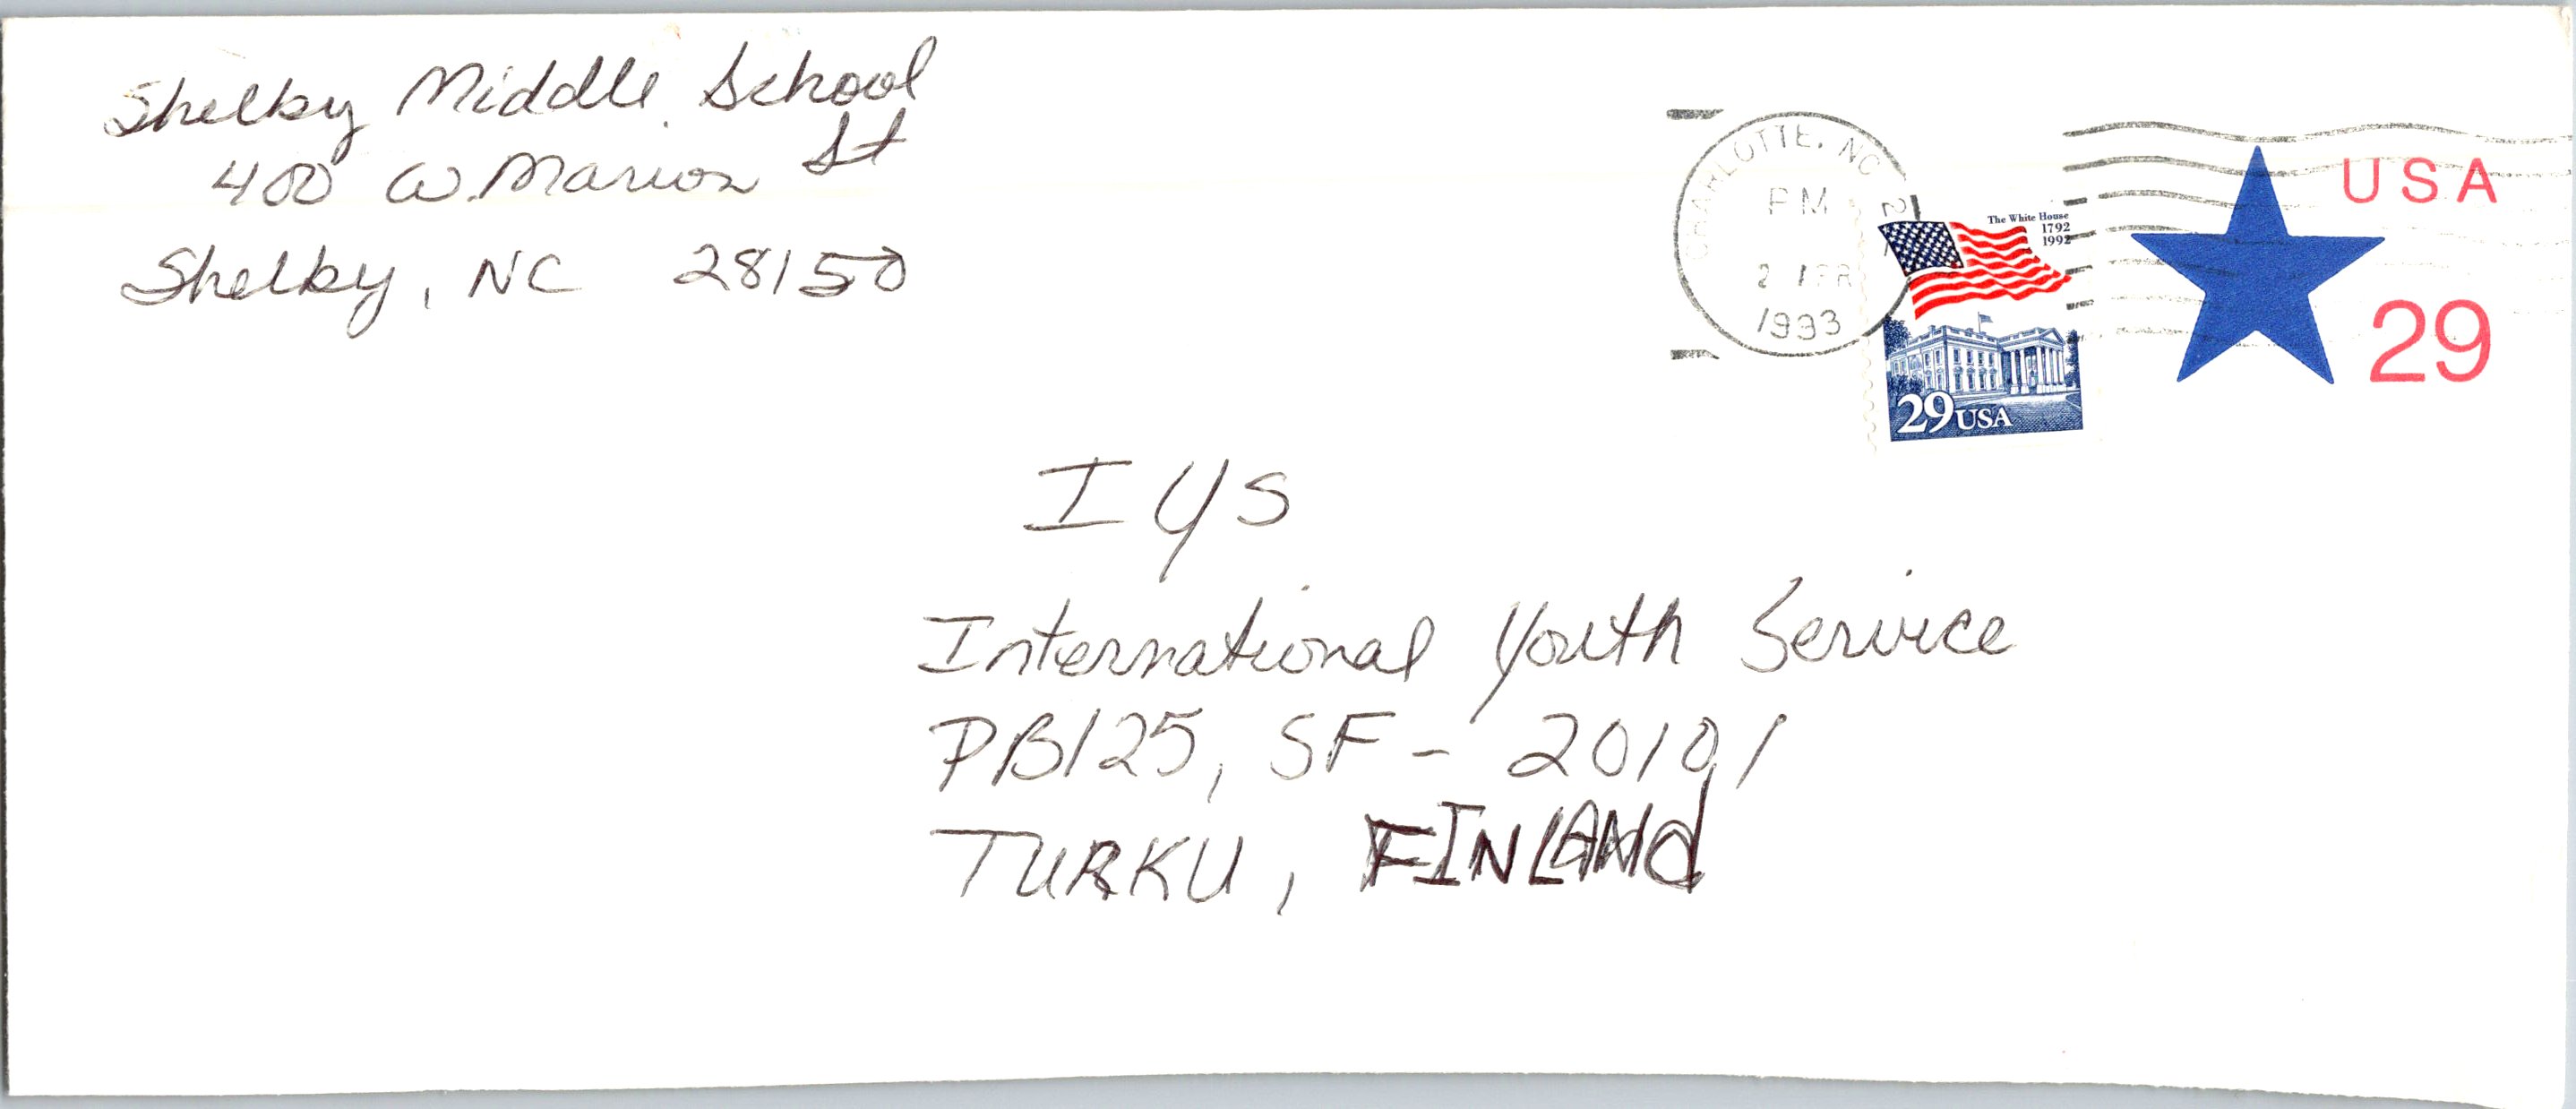 Shelby Middle School
400 W. Marion St
Shelby, NC 28150
CHARLOTTE, NC
PM
2 APR
1993
The White House
1792
1992
29 USA
USA
29
IYS
International Youth Service
PB125, SF - 20101
TURKU, FINLANd